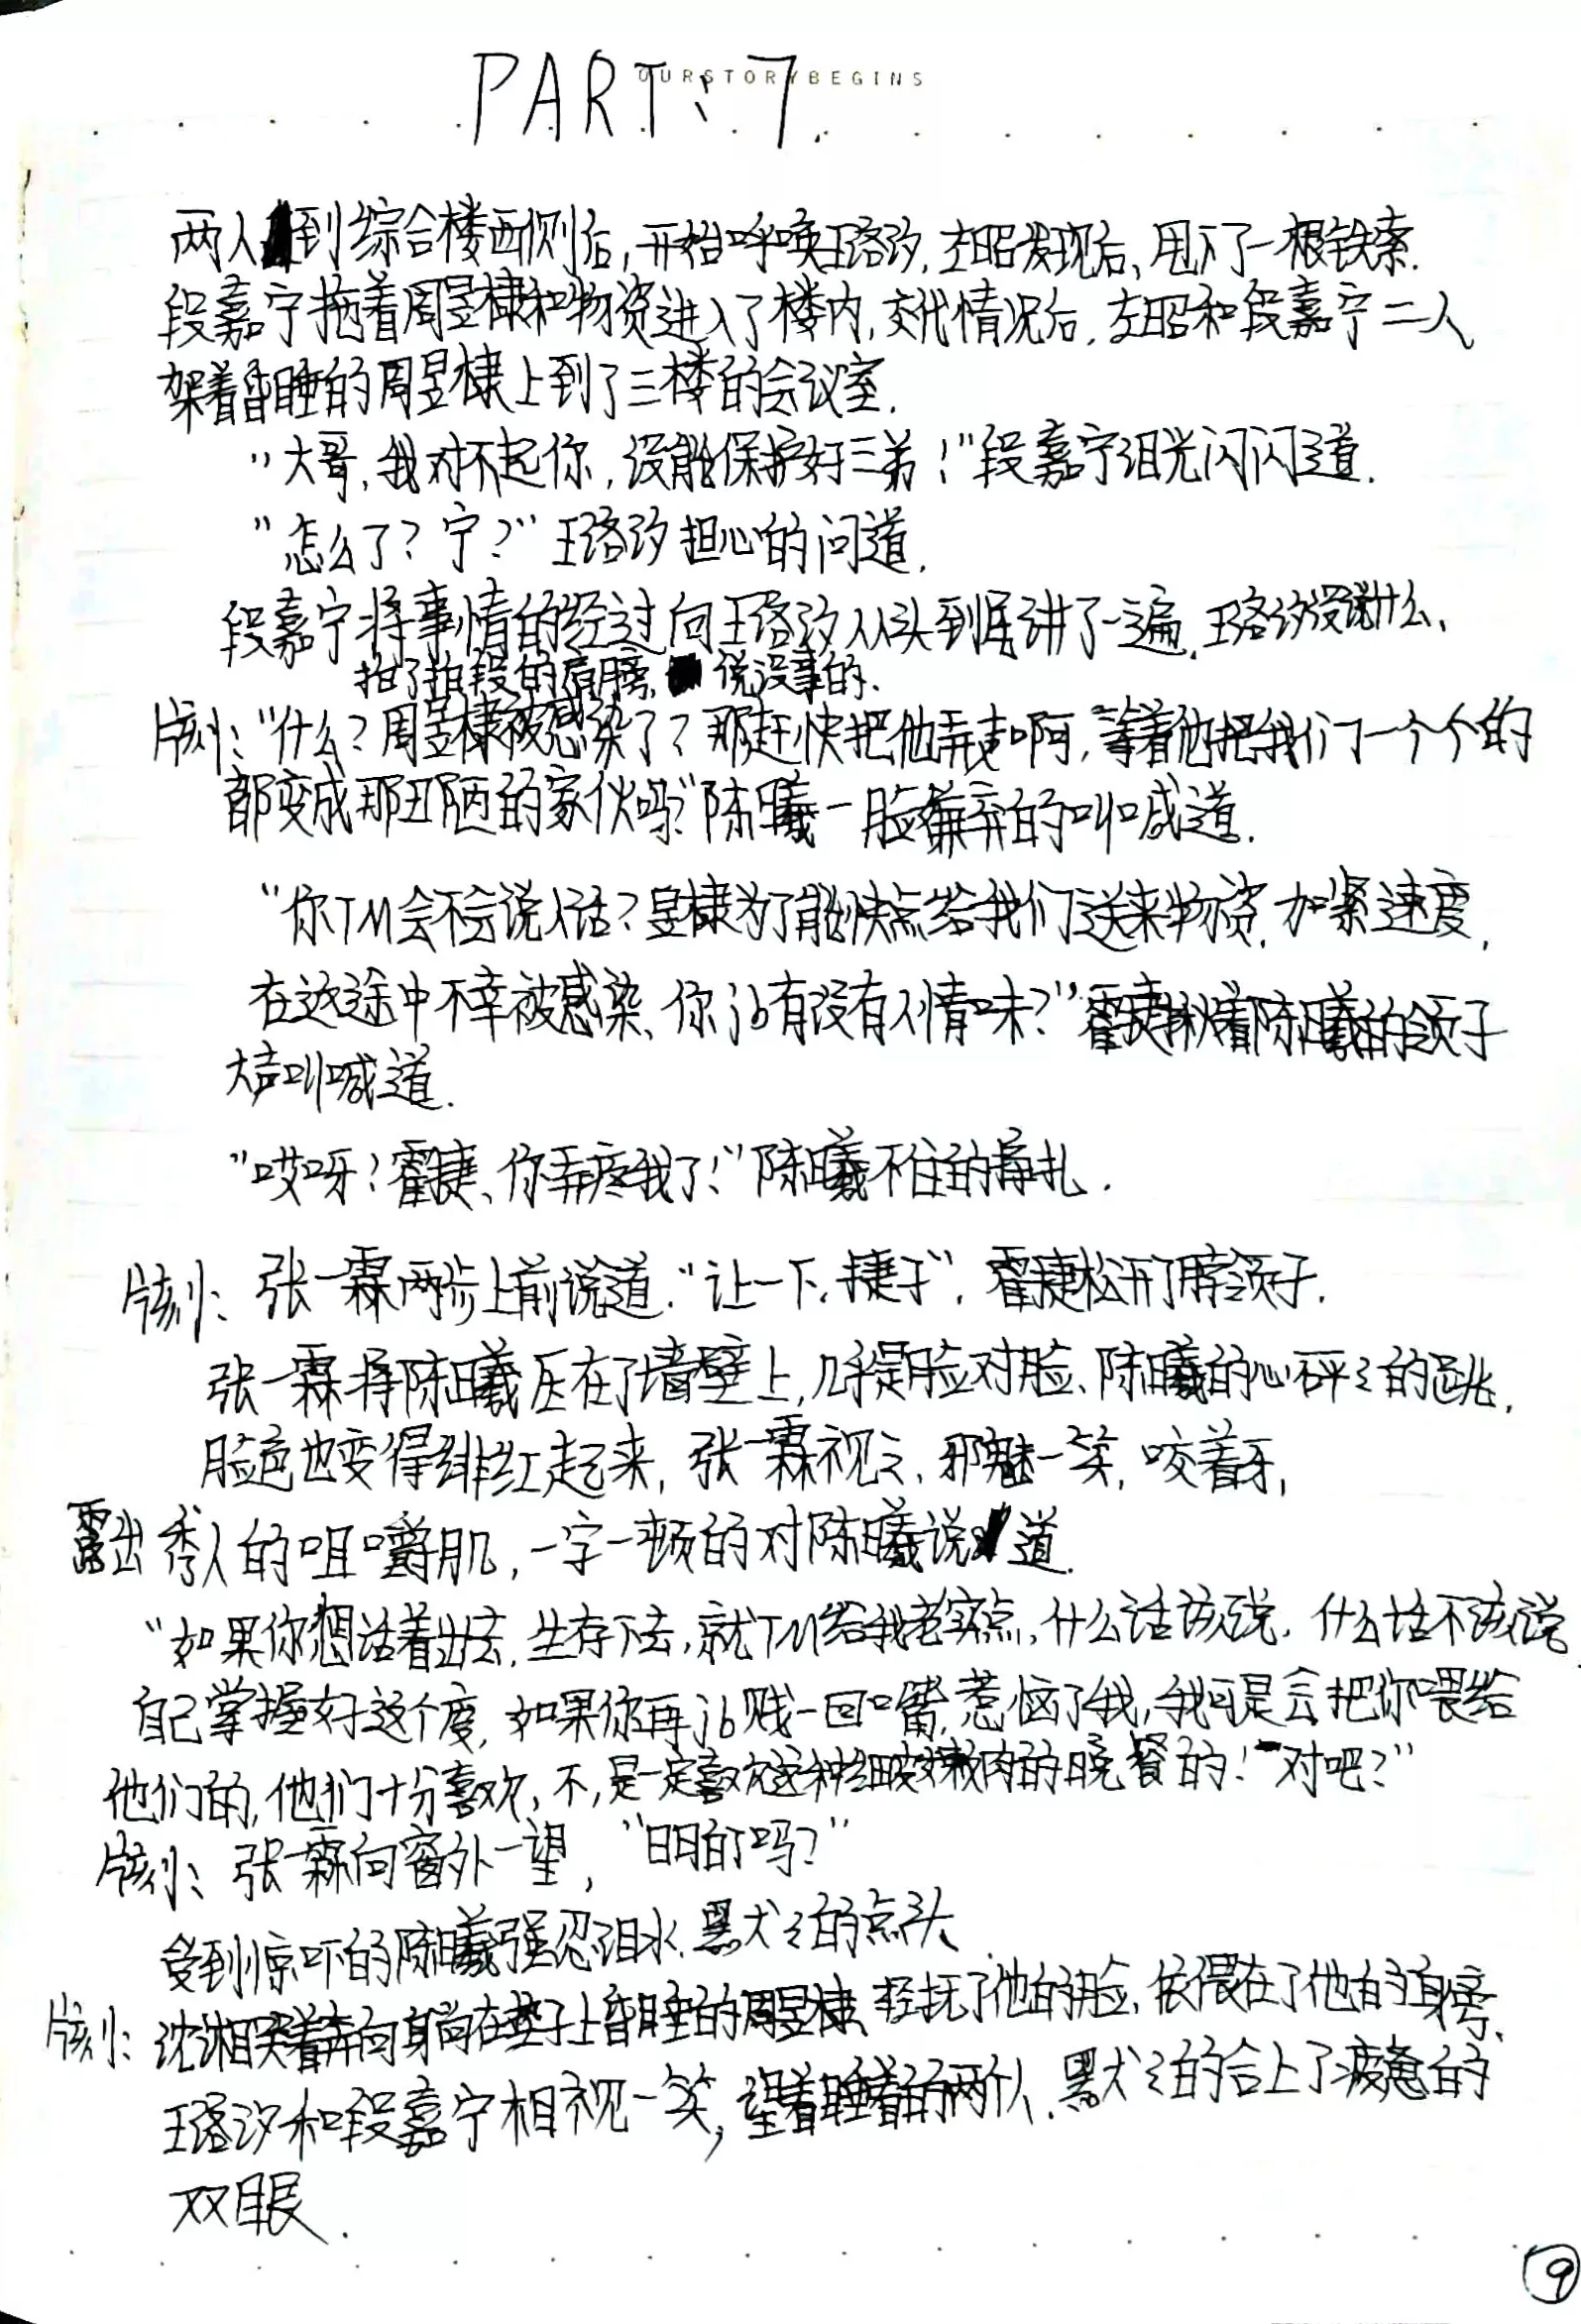 OURSTORYBEGINS
PART: 7.
两人到综合楼西侧后,开始呼唤王珞汐,左昭发现后,甩下了一根铁索.
段嘉宁拖着周昱棣和物资进入了楼内,交代情况后,左昭和段嘉宁二人
架着昏睡的周昱棣上到了三楼的会议室.
"大哥,我对不起你,没能保护好三弟!"段嘉宁泪光闪闪道.
"怎么了?宁?"王珞汐担心的问道.
段嘉宁将事情的经过向王珞汐从头到尾讲了一遍,王珞汐没说什么、
拍了拍段的肩膀,说没事的.
片刻:"什么?周昱棣被感染了?那赶快把他弄走啊,等着他把我们一个个的
都变成那丑陋的家伙吗?"陈曦一脸嫌弃的叫喊道.
"你TM会不会说人话?昱棣为了能快点给我们送来物资,加紧速度,
在这途中不幸被感染、你jb有没有人情味?"霍捷揪着陈曦的领子
大声叫喊道.
"哎呀!霍捷、你弄疼我了!"陈曦不住的挣扎.
片刻:张一霖两步上前说道."让一下,捷子",霍捷松开了陈领子.
张一霖将陈曦压在了墙壁上,几乎是脸对脸、陈曦的心砰々的跳,
脸色也变得绯红起来,张一霖视之、邪魅一笑,咬着牙,
露出秀人的咀嚼肌,一字一顿的对陈曦说道.
"如果你想活着出去,生存下去,就TM给我老实点,什么话该说,什么话不该说
自己掌握好这个度,如果你再jb贱一回嘴,惹恼了我,我可是会把你喂给
他们的,他们十分喜欢,不,是一定喜欢这种细皮嫩肉的晚餐的!对吧?"
片刻:张一霖向窗外一望,"明白了吗?"
受到惊吓的陈曦强忍泪水,默々的点头.
片刻:沈湘哭着奔向躺在垫子上昏睡的周昱棣、轻抚了他的脸,依偎在了他的身旁、
王珞汐和段嘉宁相视一笑,望着睡着的两个人,默々的合上了疲惫的
双眼.
9